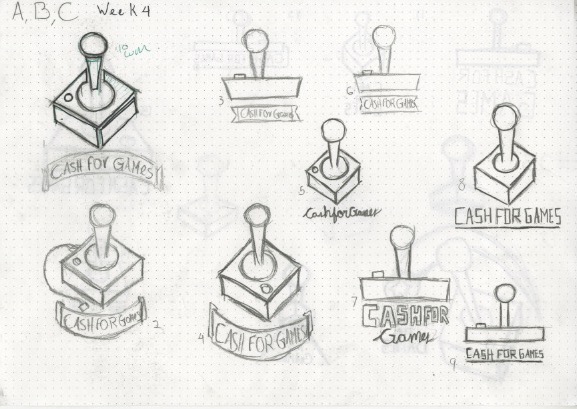 A, B, C Week 4
CASH FOR GAMES
3
CASH FOR GAMES
6
CASH FOR GAMES
5
Cash for Games
8
CASH FOR GAMES
CASH FOR Games
2
4
CASH FOR GAMES
7
CASH FOR
Games
9
CASH FOR GAMES